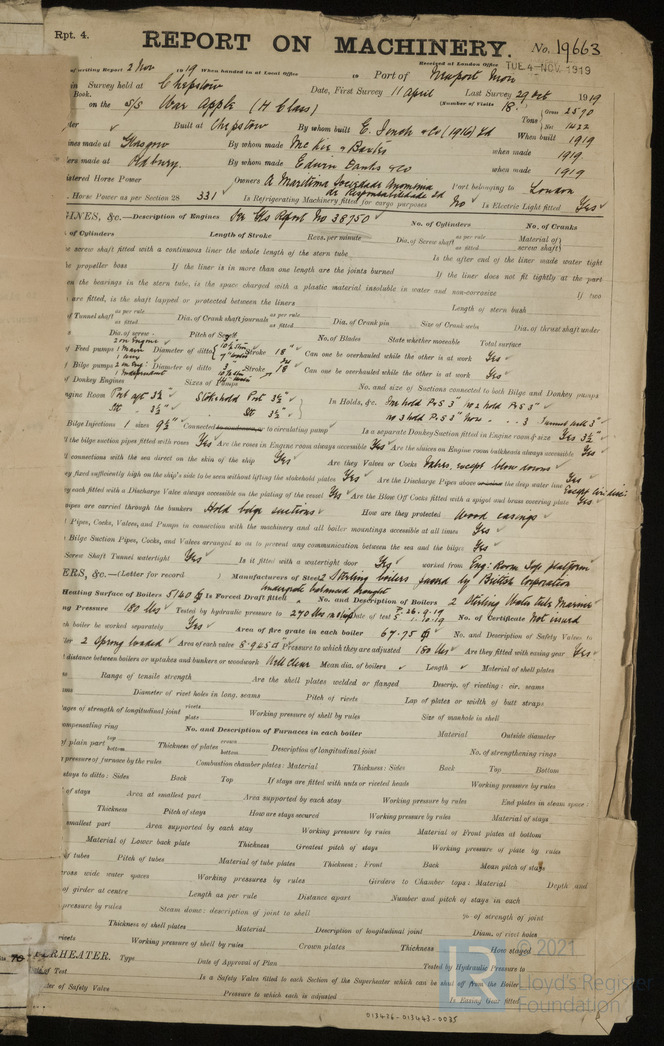 Rpt. 4.
REPORT ON MACHINERY. No. 19663
Received at London Office TUE. 4 - NOV. 1919
of writing Report 2 Nov 1919 When handed in at Local Office 19 Port of Newport Mon
in Survey held at Chepstow Date, First Survey 11 April Last Survey 29 Oct 1919
Book. (Number of Visits 18.)
on the S/S War Apple (H Class) Tons { Gross 2570
Net 1422
Built at Chepstow By whom built E. Finch & Co (1916) Ld When built 1919
ines made at Glasgow By whom made McKie & Baxter when made 1919
ers made at Oldbury. By whom made Edwin Danks & Co when made 1919
istered Horse Power Owners A Maritima Sociedade Anonima de Responsabilidade Ld Port belonging to London
. Horse Power as per Section 28 331 Is Refrigerating Machinery fitted for cargo purposes No Is Electric Light fitted Yes
GINES, &c.—Description of Engines Per Gls Report No 38750 No. of Cylinders No. of Cranks
. of Cylinders Length of Stroke Revs. per minute Dia. of Screw shaft as per rule as fitted Material of screw shaft}
he screw shaft fitted with a continuous liner the whole length of the stern tube Is the after end of the liner made water tight
he propeller boss If the liner is in more than one length are the joints burned If the liner does not fit tightly at the part
en the bearings in the stern tube, is the space charged with a plastic material insoluble in water and non-corrosive If two
are fitted, is the shaft lapped or protected between the liners Length of stern bush
f Tunnel shaft as per rule as fitted Dia. of Crank shaft journals as per rule as fitted Dia. of Crank pin Size of Crank webs Dia. of thrust shaft under
Dia. of screw Pitch of Screw No. of Blades State whether moveable Total surface
of Feed pumps Diameter of ditto Stroke 18" Can one be overhauled while the other is at work Yes
f Bilge pumps Diameter of ditto 3" Stroke 18" Can one be overhauled while the other is at work Yes
f Donkey Engines Sizes of Pumps No. and size of Suctions connected to both Bilge and Donkey pumps
ngine Room Port aft 3½" Stokehold Port 3½" In Holds, &c. No 1 hold P.S 3" No 2 hold P.S 3"
St. 3½" St. 3½" No 3 hold P.S 3" Tunnel well 3"
Bilge Injections 1 sizes 9½" Connected to circulating pump Is a separate Donkey Suction fitted in Engine room & size Yes 3½"
ll the bilge suction pipes fitted with roses Yes Are the roses in Engine room always accessible Yes Are the sluices on Engine room bulkheads always accessible Yes
ll connections with the sea direct on the skin of the ship Yes Are they Valves or Cocks Valves, except blow downs
ey fixed sufficiently high on the ship's side to be seen without lifting the stokehold plates Yes Are the Discharge Pipes above the deep water line Yes
ey each fitted with a Discharge Valve always accessible on the plating of the vessel Yes Are the Blow Off Cocks fitted with a spigot and brass covering plate Yes
ipes are carried through the bunkers Hold bilge suctions How are they protected Wood casings
Pipes, Cocks, Valves, and Pumps in connection with the machinery and all boiler mountings accessible at all times Yes
Bilge Suction Pipes, Cocks, and Valves arranged so as to prevent any communication between the sea and the bilges Yes
Screw Shaft Tunnel watertight Yes Is it fitted with a watertight door Yes worked from Eng: Room Top platform
ERS, &c.—(Letter for record ) Manufacturers of Steel 2 Stirling boilers passed by British Corporation
Heating Surface of Boilers 5140 Is Forced Draft fitted Undergrate balanced draught No. and Description of Boilers 2 Stirling Water tube Marine
ng Pressure 180 lbs Tested by hydraulic pressure to 270 lbs Date of test P. 26.9.19 S. 1.10.19 No. of Certificate Not issued
ch boiler be worked separately Yes Area of fire grate in each boiler 67.75 No. and Description of Safety Valves to
ler 2 Spring loaded Area of each valve 5.9450" Pressure to which they are adjusted 180 lbs Are they fitted with easing gear Yes
t distance between boilers or uptakes and bunkers or woodwork Well clear Mean dia. of boilers Length Material of shell plates
Range of tensile strength Are the shell plates welded or flanged Descrip. of riveting: cir. seams
ams Diameter of rivet holes in long. seams Pitch of rivets Lap of plates or width of butt straps
ages of strength of longitudinal joint rivets plate Working pressure of shell by rules Size of manhole in shell
ompensating ring No. and Description of Furnaces in each boiler Material Outside diameter
f plain part top bottom Thickness of plates crown bottom Description of longitudinal joint No. of strengthening rings
pressure of furnace by the rules Combustion chamber plates: Material Thickness: Sides Back Top Bottom
stays to ditto: Sides Back Top If stays are fitted with nuts or riveted heads Working pressure by rules
of stays Area at smallest part Area supported by each stay Working pressure by rules End plates in steam space:
Thickness Pitch of stays How are stays secured Working pressure by rules Material of stays
smallest part Area supported by each stay Working pressure by rules Material of Front plates at bottom
Material of Lower back plate Thickness Greatest pitch of stays Working pressure of plate by rules
of tubes Pitch of tubes Material of tube plates Thickness: Front Back Mean pitch of stays
cross wide water spaces Working pressures by rules Girders to Chamber tops: Material Depth and
of girder at centre Length as per rule Distance apart Number and pitch of stays in each
pressure by rules Steam dome: description of joint to shell % of strength of joint
Thickness of shell plates Material Description of longitudinal joint Diam. of rivet holes
rivets Working pressure of shell by rules Crown plates Thickness How stayed
ERHEATER. Type Date of Approval of Plan Tested by Hydraulic Pressure to
of Test Is a Safety Valve fitted to each Section of the Superheater which can be shut off from the Boiler
ter of Safety Valve Pressure to which each is adjusted Is Easing Gear fitted
013436-013443-0035
LR © 2021
Lloyd's Register
Foundation